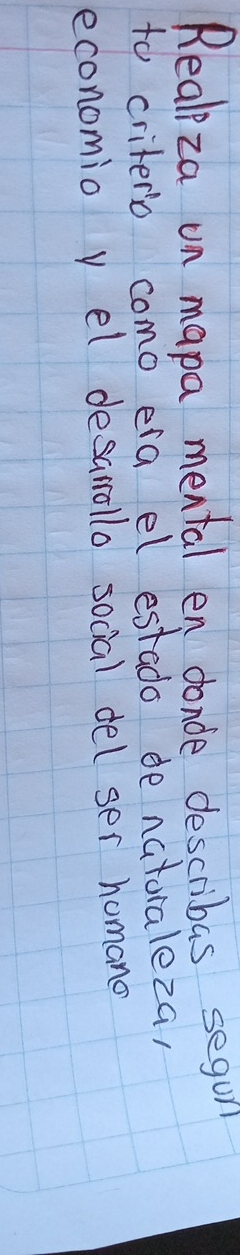 Realiza un mapa mental en donde describas segun
tu criterio como era el estado de naturaleza,
economio y el desarrollo social del ser humano